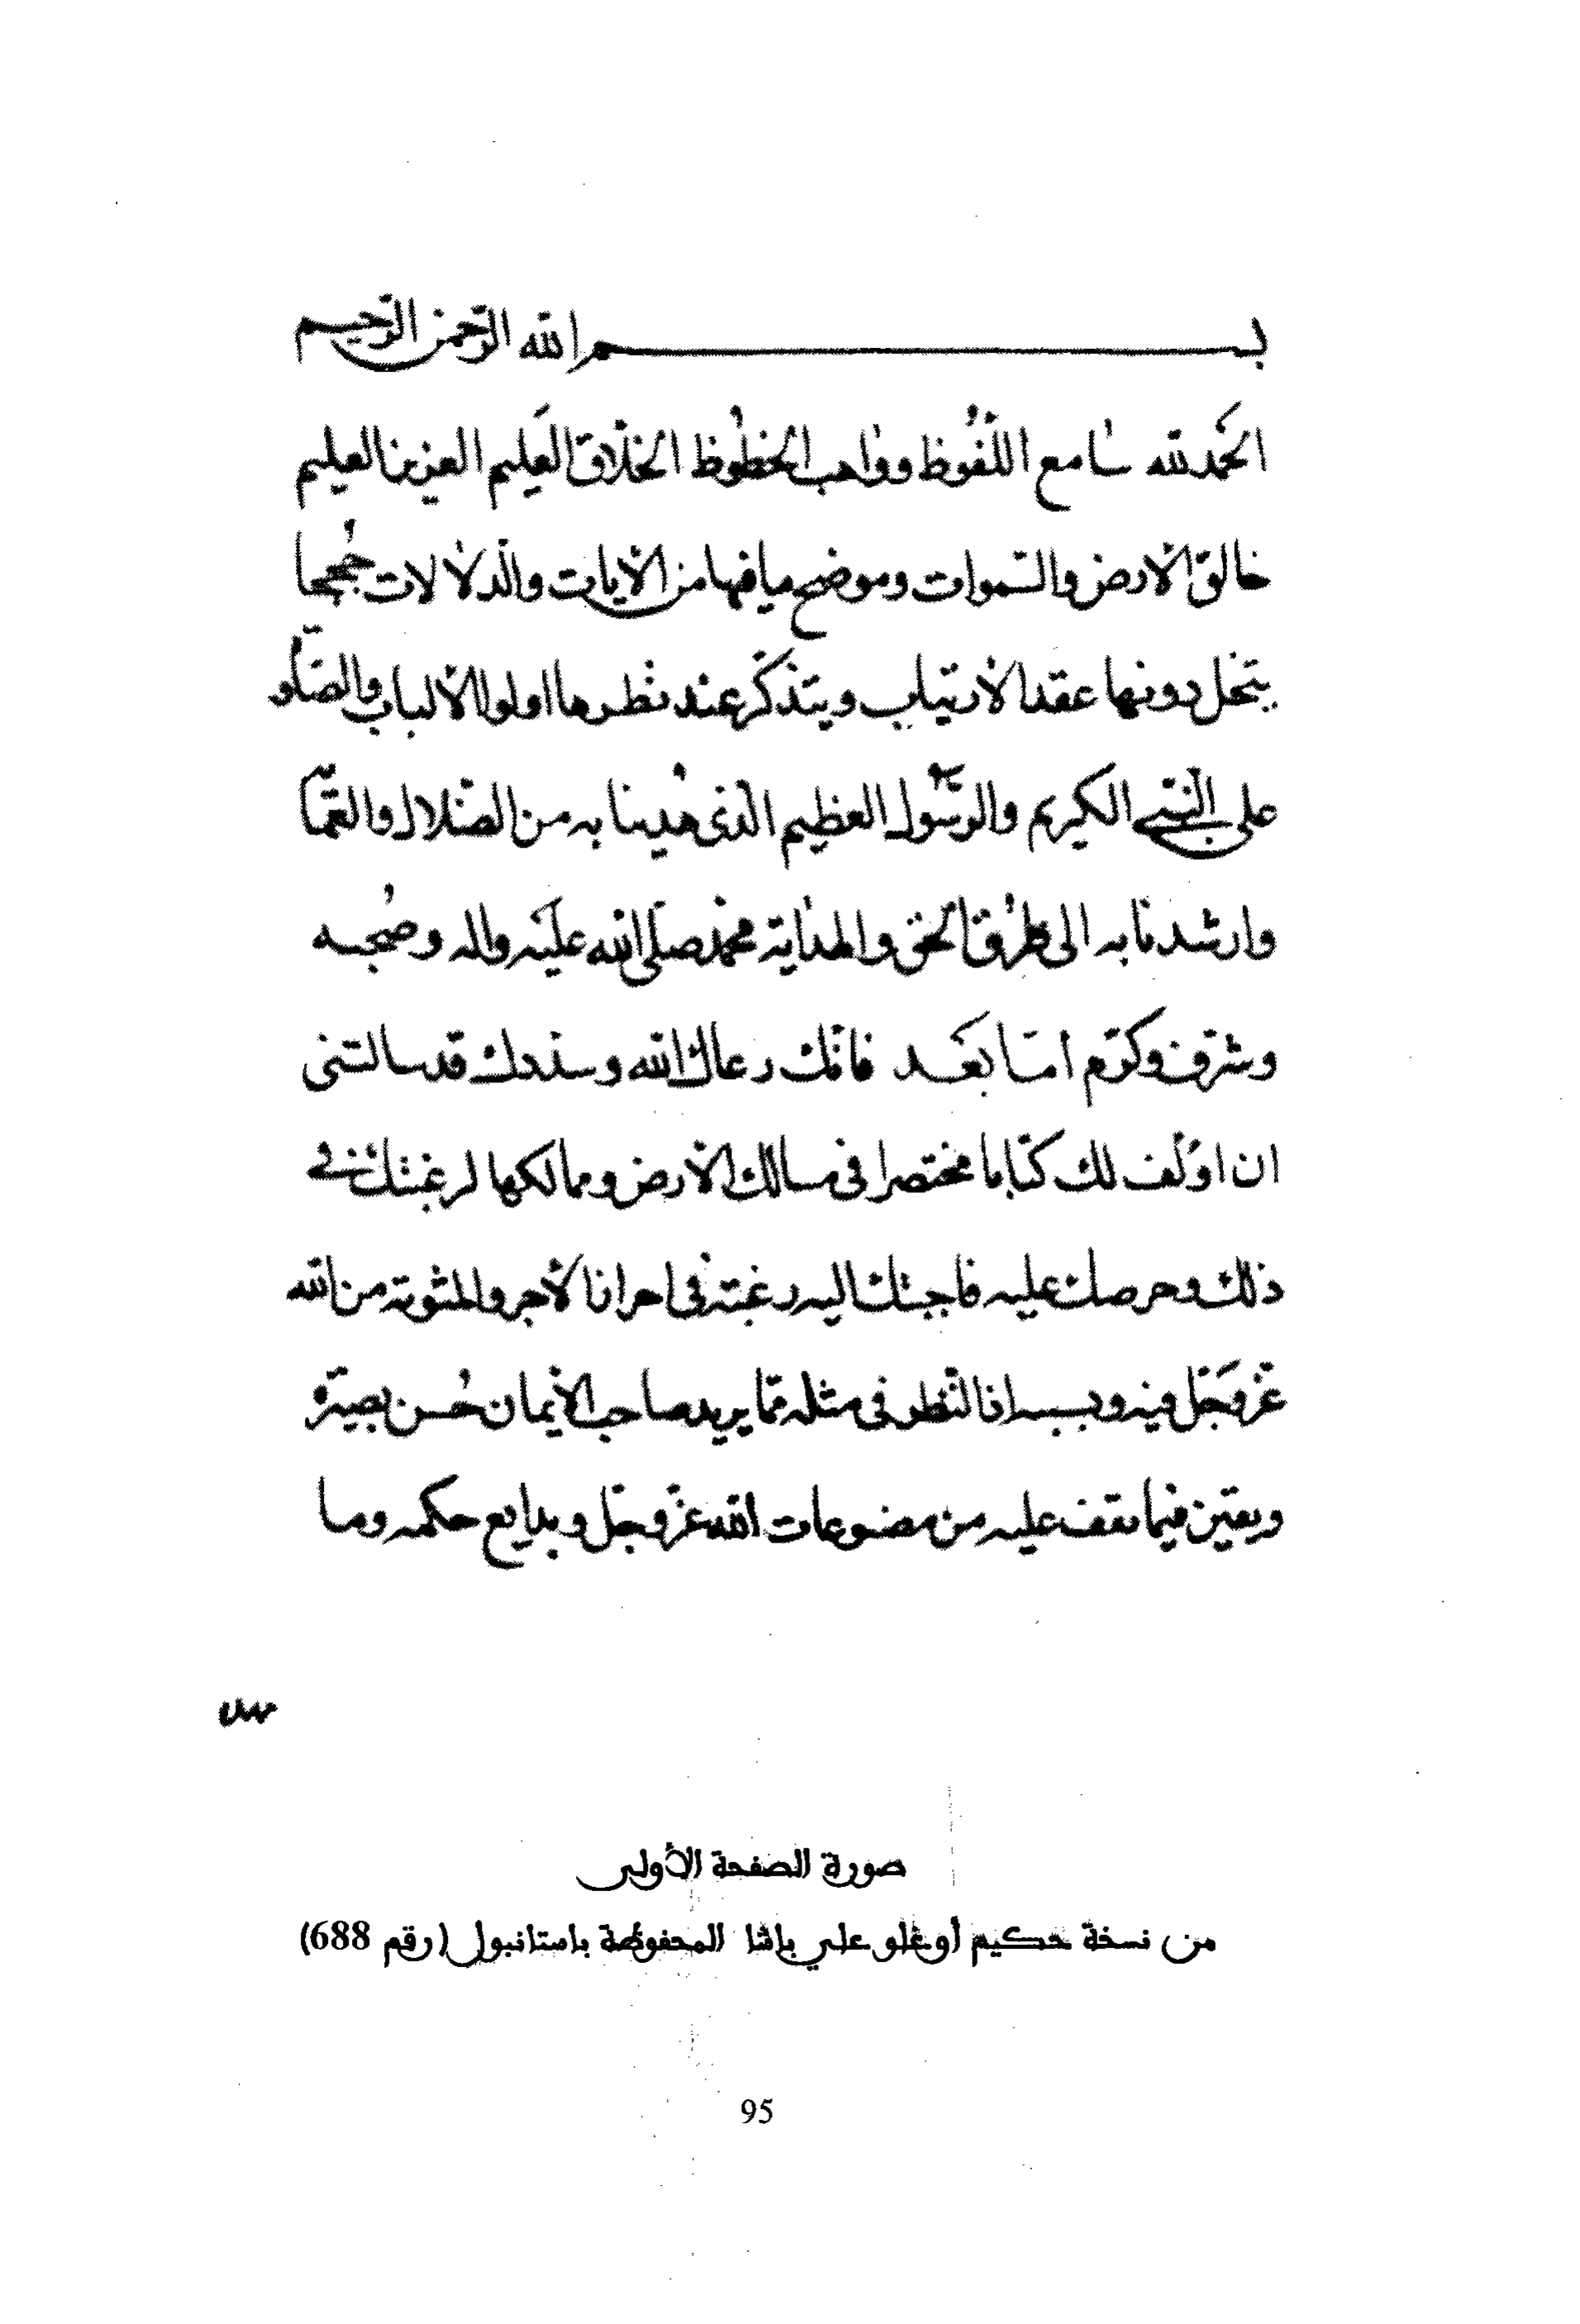 بسم الله الرحمن الرحيم
الحمد لله سامع اللفوظ وواهب الحظوظ الخلاق العليم العزيز العليم
خالق الارض والسموات وموضح ما فيها من الايات والدلالات حججا
ينحل دونها عقد الارتياب ويتذكر عند نظرها اولوا الالباب والصلو
على النبي الكريم والرسول العظيم الذي هدينا به من الضلال والعما
وارشدنا به الى طرق الحق والهداية محمد صلى الله عليه واله وصحبه
وشرف وكرم اما بعد فانك رعاك الله وسددك قد سالتني
ان اولف لك كتابا مختصرا في مسالك الارض وممالكها لرغبتك في
ذلك وحرصك عليه فاجبتك اليه رغبة في احراز الاجر والمثوبة من الله
عز وجل فيه وبسبب ان النظر في مثله مما يريد صاحب الايمان حسن بصيرة
ويقين فيما يقف عليه من مصنوعات الله عز وجل وبدايع حكمه وما
صورة الصفحة الأولى
من نسخة حكيم أوغلو علي باشا المحفوظة باستانبول (رقم 688)
95